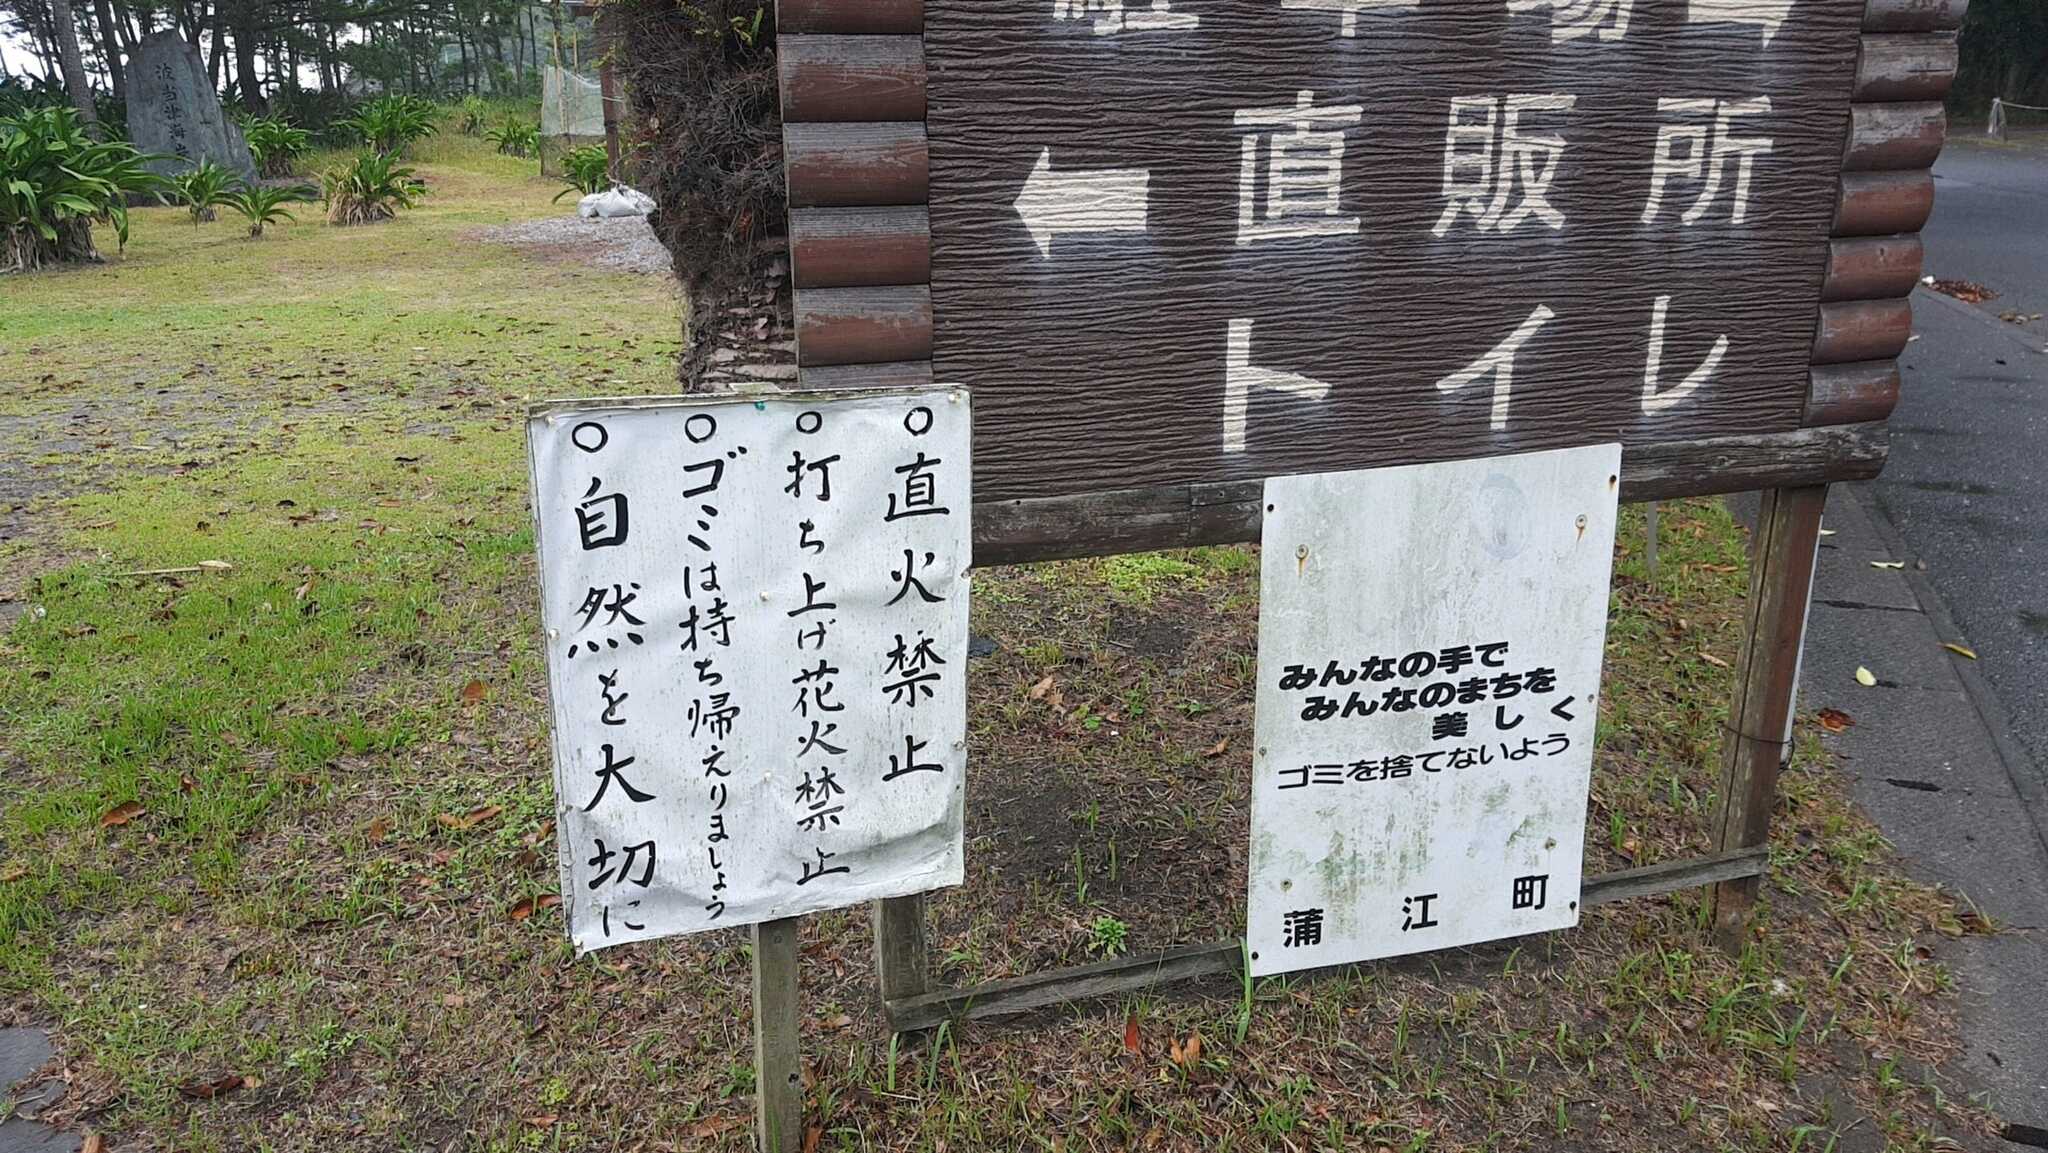 駐車場
直販所
トイレ
○直火禁止
○打ち上げ花火禁止
○ゴミは持ち帰えりましょう
○自然を大切に
みんなの手で
みんなのまちを
美しく
ゴミを捨てないよう
蒲江町
波当津海岸